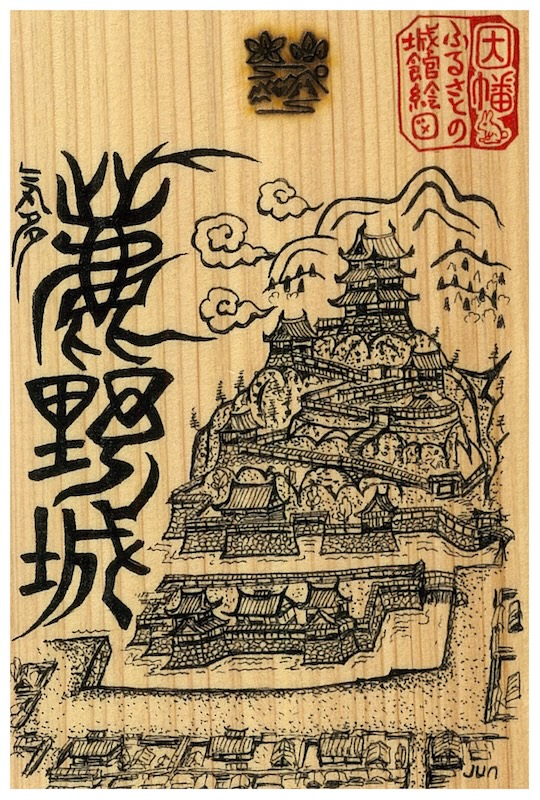 因幡
ふるさとの
城館絵図
気多
鹿野城
Jun